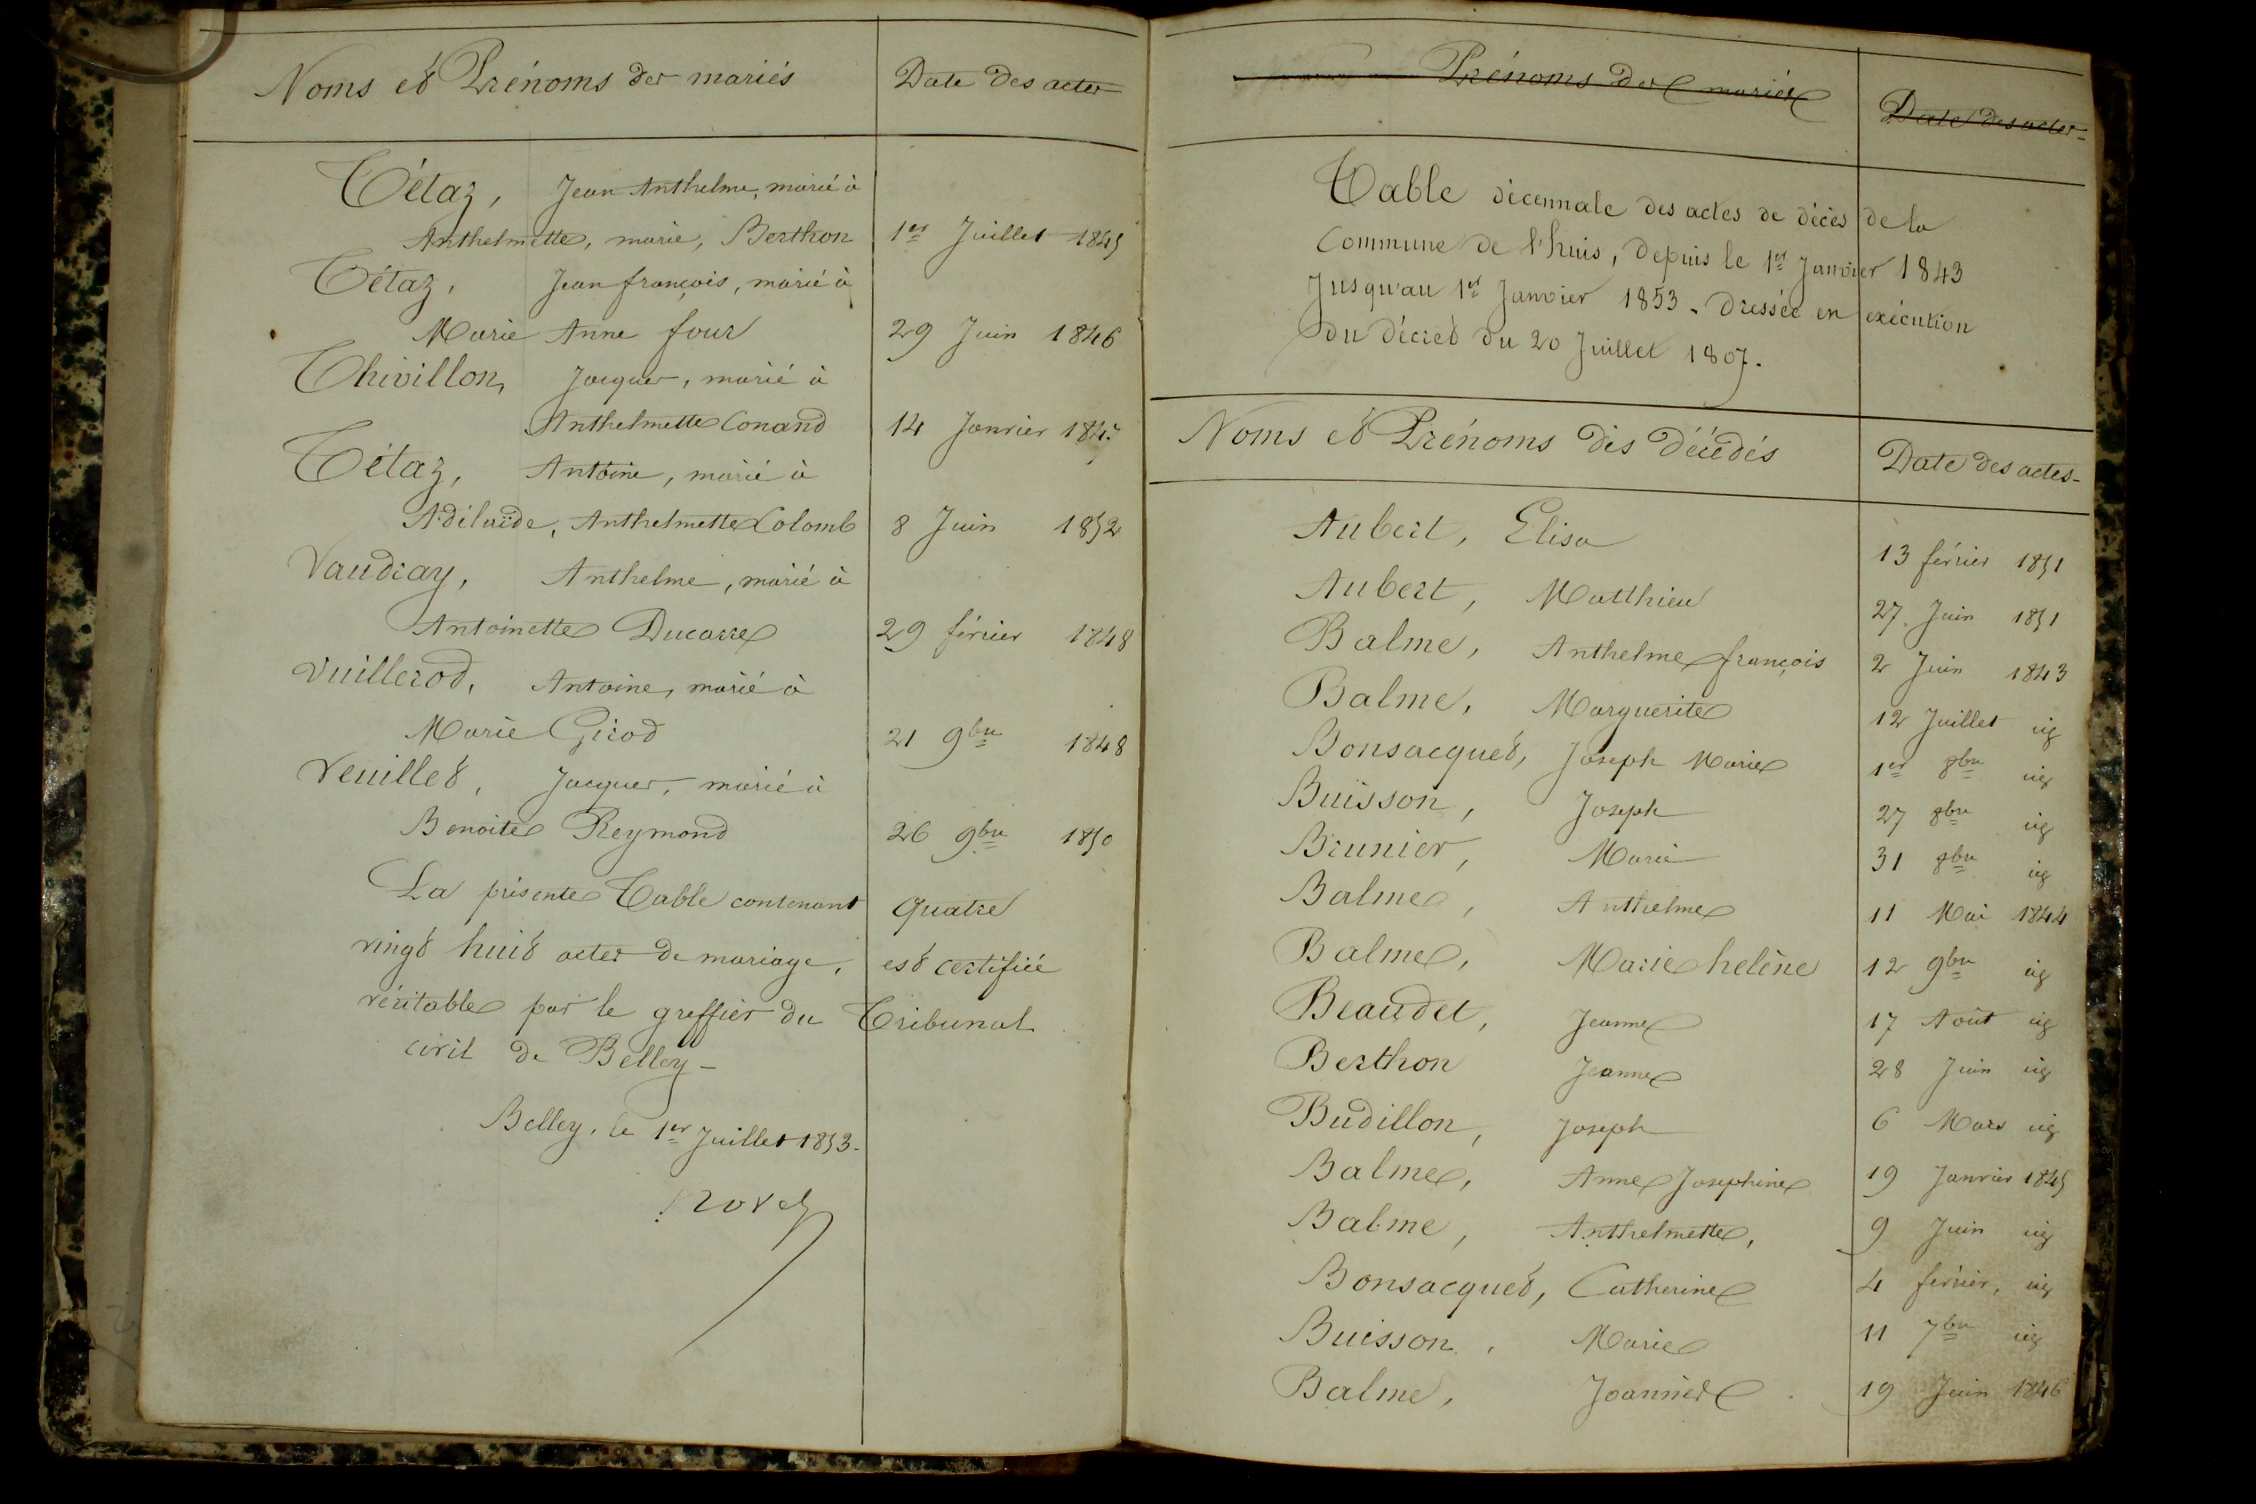 Noms et Prénoms des mariés Date des actes
Tétaz, Jean Anthelme, marié à
Anthelmette, marie, Berthon 1er Juillet 1845
Tétaz, Jean françois, marié à
Marie Anne four 29 Juin 1846
Thivillon, Jacques, marié à
Anthelmette Conand 14 Janvier 1847
Tétaz, Antoine, marié à
Adélaïde, Anthelmette Colomb 8 Juin 1852
Vaudray, Anthelme, marié à
Antoinette Ducarre 29 février 1848
Vuillerod, Antoine, marié à
Marie Girod 21 9bre 1848
Veuillet, Jacques, marié à
Benoite Reymond 26 9bre 1850
La présente Table contenant quatre
vingt huit actes de mariage, est certifiée
véritable par le greffier du Tribunal
civil de Belley -
Belley, le 1er Juillet 1853.
Prénoms des mariés Date des actes
Table décennale des actes de décès de la
Commune de l'huis, depuis le 1er Janvier 1843
Jusqu'au 1er Janvier 1853. Dressée en exécution
du décret du 20 Juillet 1807.
Noms et Prénoms des décédés Date des actes
Aubert, Elisa 13 février 1851
Aubert, Matthieu 27 Juin 1851
Balme, Anthelme françois 2 Juin 1843
Balme, Marguerite 12 Juillet id
Bonsacquet, Joseph Marie 1er 8bre id
Buisson, Joseph 27 8bre id
Brunier, Marie 31 8bre id
Balme, Anthelme 11 Mai 1844
Balme, Marie helène 12 9bre id
Beaudet, Jeanne 17 Août id
Berthon Jeanne 28 Juin id
Budillon, Joseph 6 Mars id
Balme, Anne Josephine 19 Janvier 1845
Balme, Anthelmette, 9 Juin id
Bonsacquet, Catherine 4 février, id
Buisson, Marie 11 7bre id
Balme, 19 Juin 1846